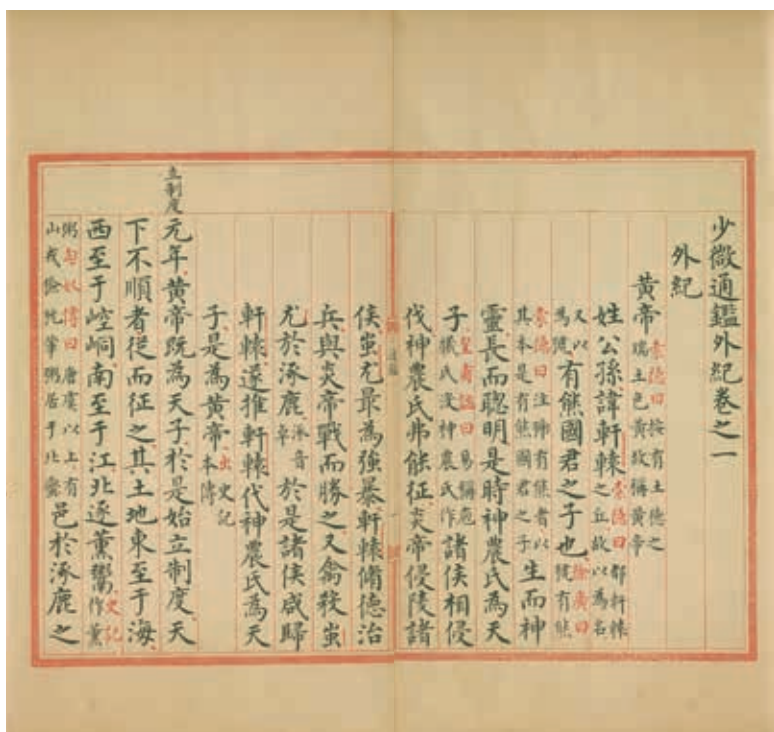 少微通鑑外紀卷之一
外紀
黄帝索德曰按有土德之瑞土色黄故稱黄帝
姓公孫諱軒轅索德曰都軒轅之丘故以為名
又以為號有熊國君之子也徐廣曰號有熊
索德曰注號有熊者以其本是有熊國君之子生而神
靈長而聰明是時神農氏為天
子皇甫謐曰易稱庖犧氏沒神農氏作諸侯相侵
伐神農氏弗能征炎帝侵陵諸
侯蚩尤最為強暴軒轅脩德治
兵與炎帝戰而勝之又禽殺蚩
尤於涿鹿涿音卓於是諸侯咸歸
軒轅遂推軒轅代神農氏為天
子是為黄帝出史記本傳
立制度
元年黄帝既為天子於是始立制度天
下不順者從而征之其土地東至于海
西至于崆峒南至于江北逐薰鬻史記作薰
粥匈奴傳曰唐虞以上有山戎獫狁葷粥居于北蠻邑於涿鹿之